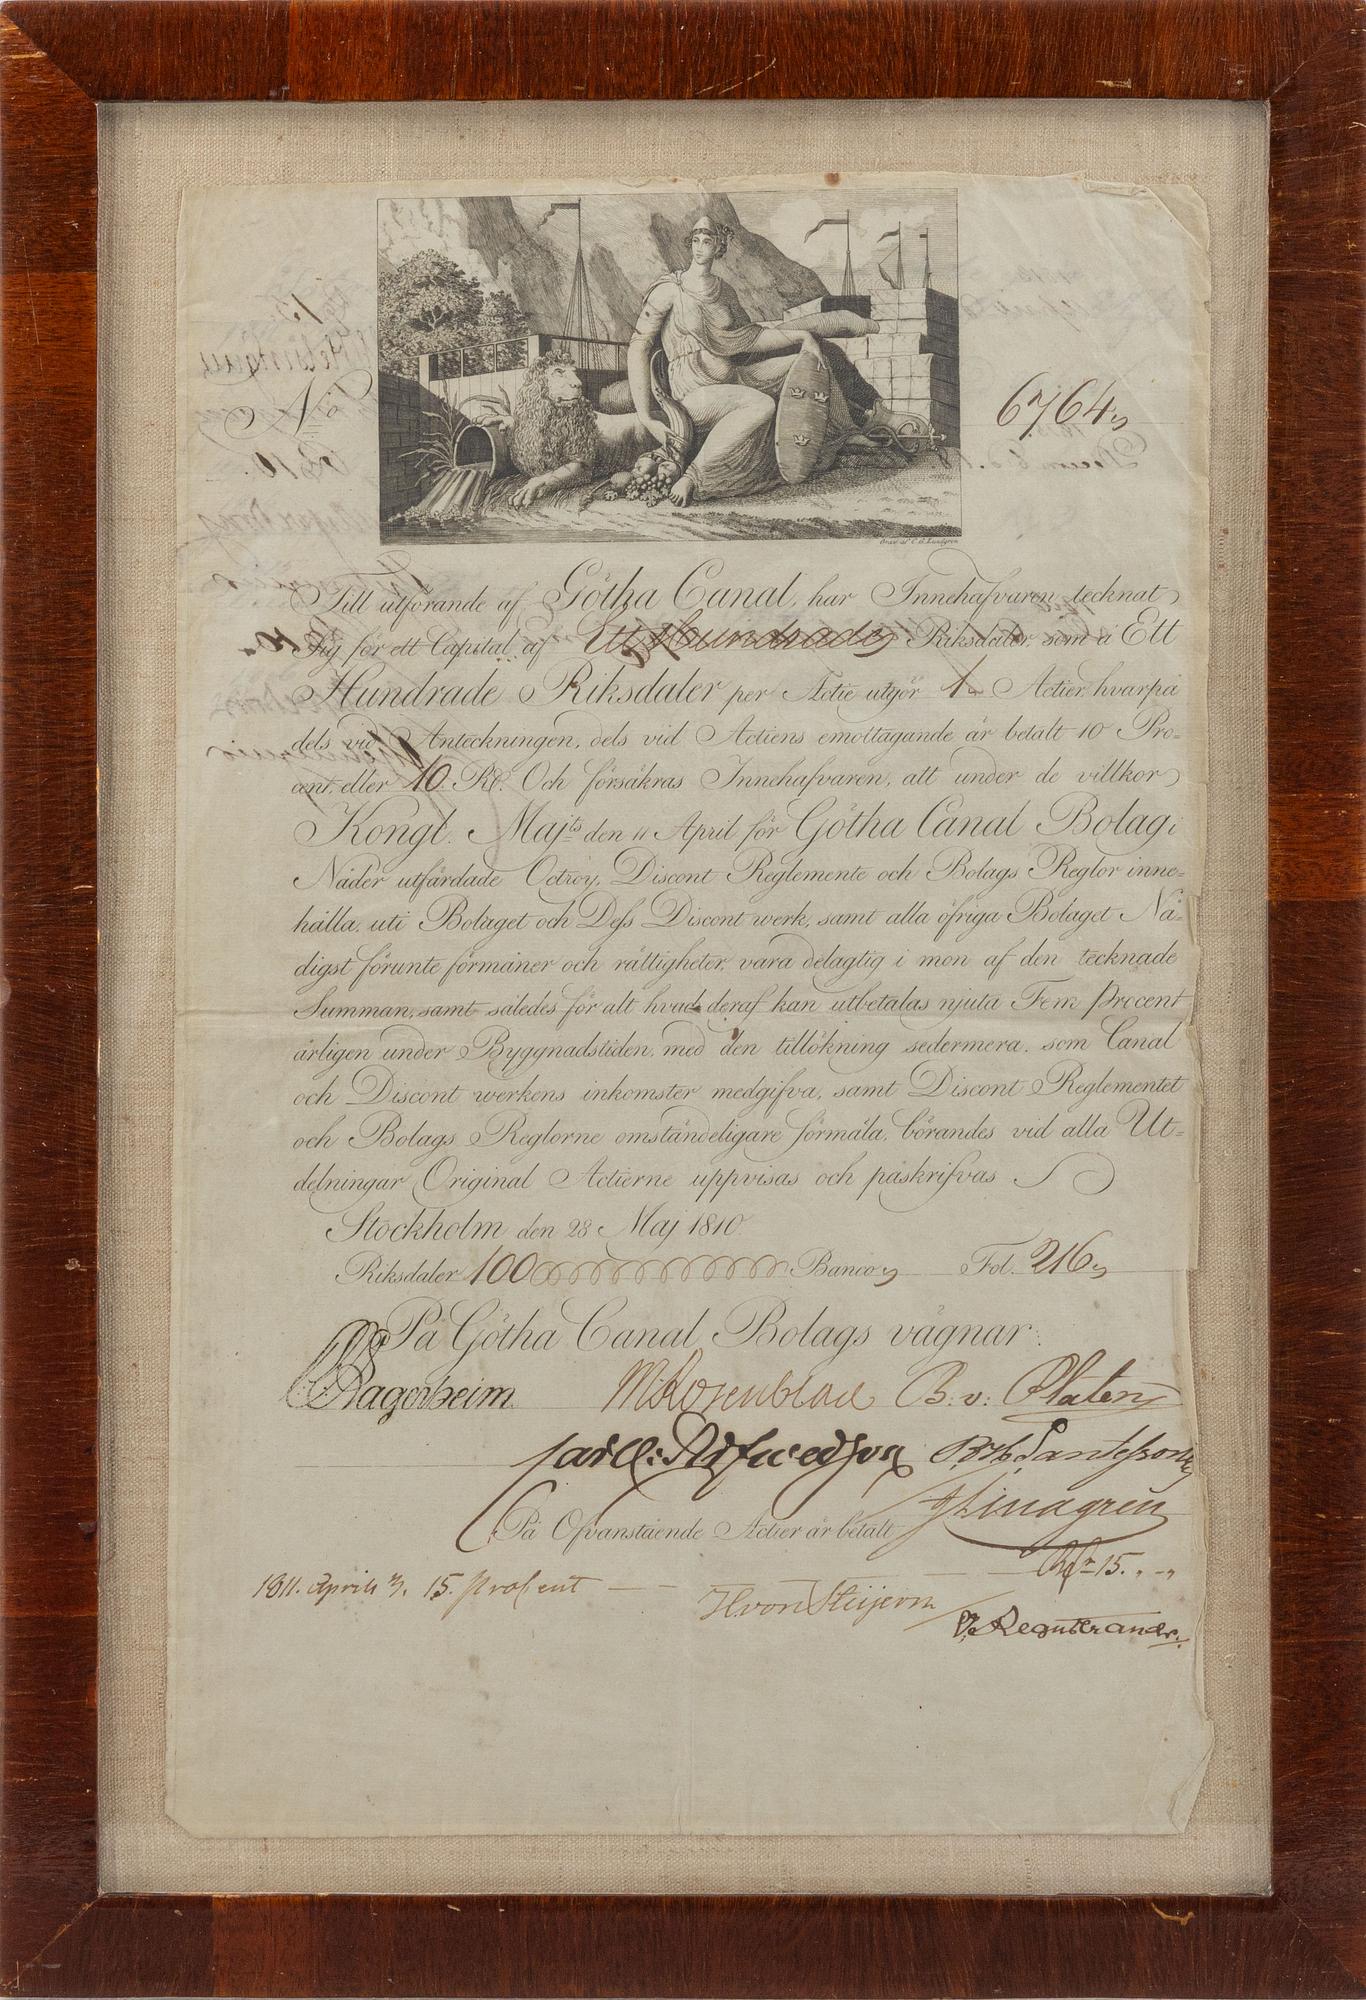 N 6764
Grav. af C. G. Lundgren
Till utförande af Götha Canal, har Innehafvaren tecknat
Sig för ett Capital af Ett Hundrade Riksdaler, som à Ett
Hundrade Riksdaler per Actie utgör 1 Actier, hvarpå
dels vid Anteckningen, dels vid Actiens emottagande är betalt 10 Pro=
cent, eller 10 Rd. Och försäkras Innehafvaren, att under de villkor
Kongl. Majts den 11 April för Götha Canal Bolag i
Nåder utfärdade Octroy, Discont Reglemente och Bolags Reglor inne=
hålla, uti Bolaget och Dess Discont werk, samt alla öfriga Bolaget Nå=
digst förunte förmåner och rättigheter, vara delagtig i mon af den tecknade
Summan, samt således för alt hvad deraf kan utbetalas njuta Fem Procent
årligen under Byggnadstiden, med den tillökning sedermera, som Canal
och Discont werkens inkomster medgifva, samt Discont Reglementet
och Bolags Reglorne omständeligare förmäla, börandes vid alla Ut=
delningar Original Actierne uppvisas och påskrifvas
Stockholm den 28 Maj 1810
Riksdaler 100 Banco Fol. 216
På Götha Canal Bolags vägnar:
Lagerheim M Rosenblad B. v. Platen
Carl A: Arfwedson Santesson
Lindgren
På Ofvanstående Actier är betalt
1811. April 3. 15. procent — — Rd 15. „ „
H von Stijern